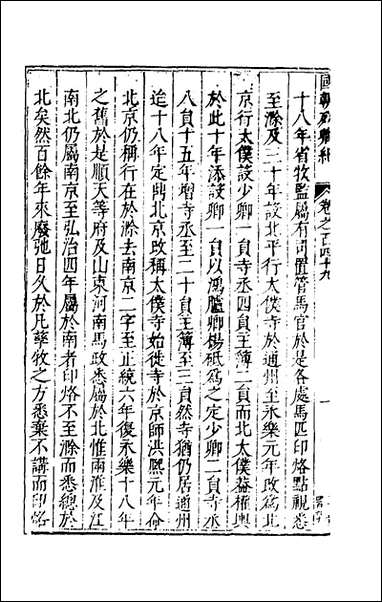 國朝列卿紀 卷之一百四十九
十八年省牧監屬有司置管馬官於是各處馬匹印烙點視悉
至滁及三十年設北平行太僕寺於通州至永樂元年改為北
京行太僕設少卿一負寺丞四負主簿一負而北太僕葢權輿
於此十年添設卿一負以鴻臚卿楊砥為之定少卿二負寺丞
八負十五年增寺丞至二十負主簿至三負然寺猶仍居通州
迨十八年定鼎北京改稱太僕寺始徙寺於京師洪熙元年命
北京仍稱行在於滁去南京二字至正統六年復永樂十八年
之舊於是順天等府及山東河南馬政悉屬於北惟兩淮及江
南北仍屬南京至弘治四年屬於南者印烙不至滁而悉總於
北矣然百餘年來廢弛日久於凡孳牧之方悉棄不講而印烙